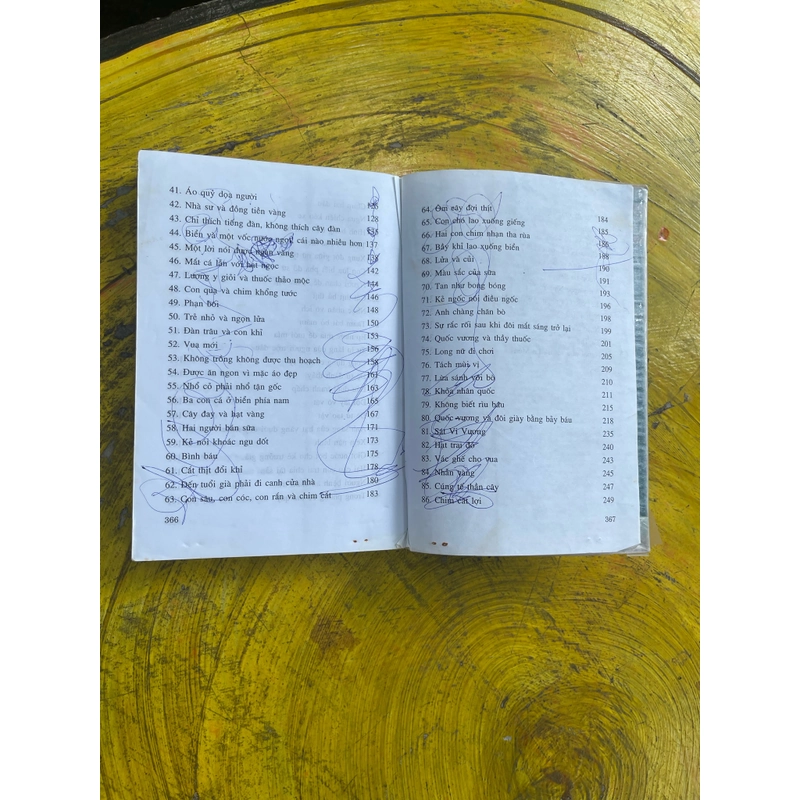 41. Áo quỷ dọa người
42. Nhà sư và đồng tiền vàng 128
43. Chỉ thích tiếng đàn, không thích cây đàn
44. Biển và một vốc nước ngọt cái nào nhiều hơn 137
45. Một lời nói được ngàn vàng 138
46. Mất cả lẫn với hạt ngọc 142
47. Lương y giỏi và thuốc thảo mộc 144
48. Con quạ và chim khổng tước 146
49. Phản bội 148
50. Trẻ nhỏ và ngọn lửa 150
51. Đàn trâu và con khỉ 153
52. Vua mới 156
53. Không trồng không được thu hoạch 158
54. Được ăn ngon vì mặc áo đẹp 161
55. Nhổ cỏ phải nhổ tận gốc 163
56. Ba con cá ở biển phía nam 165
57. Cây đay và hạt vàng 167
58. Hai người bán sữa 171
59. Kẻ nói khoác ngu dốt 173
60. Bình báu 175
61. Cắt thịt đổi khỉ 178
62. Đến tuổi già phải đi canh cửa nhà 180
63. Con sâu, con cóc, con rắn và chim cắt 183
366
64. Ôm cây đợi thịt
65. Con chó lao xuống giếng 184
66. Hai con chim nhạn tha rùa 185
67. Bầy khỉ lao xuống biển 186
68. Lửa và củi 188
69. Màu sắc của sữa 190
70. Tan như bong bóng 191
71. Kẻ ngốc nói điều ngốc 193
72. Anh chàng chăn bò 196
73. Sự rắc rối sau khi đôi mắt sáng trở lại 198
74. Quốc vương và thầy thuốc 199
75. Long nữ đi chơi 201
76. Tách mùi vị 205
77. Lừa sánh với bò 209
78. Khỏa nhân quốc 210
79. Không biết rìu bửu 211
80. Quốc vương và đôi giày bằng bảy báu 215
81. Sát Vi Vương 218
82. Hạt trai đỏ 235
83. Vác ghế cho vua 240
84. Nhẫn vàng 243
85. Cúng tế thần cây 245
86. Chim cãi lợi 247
249
367